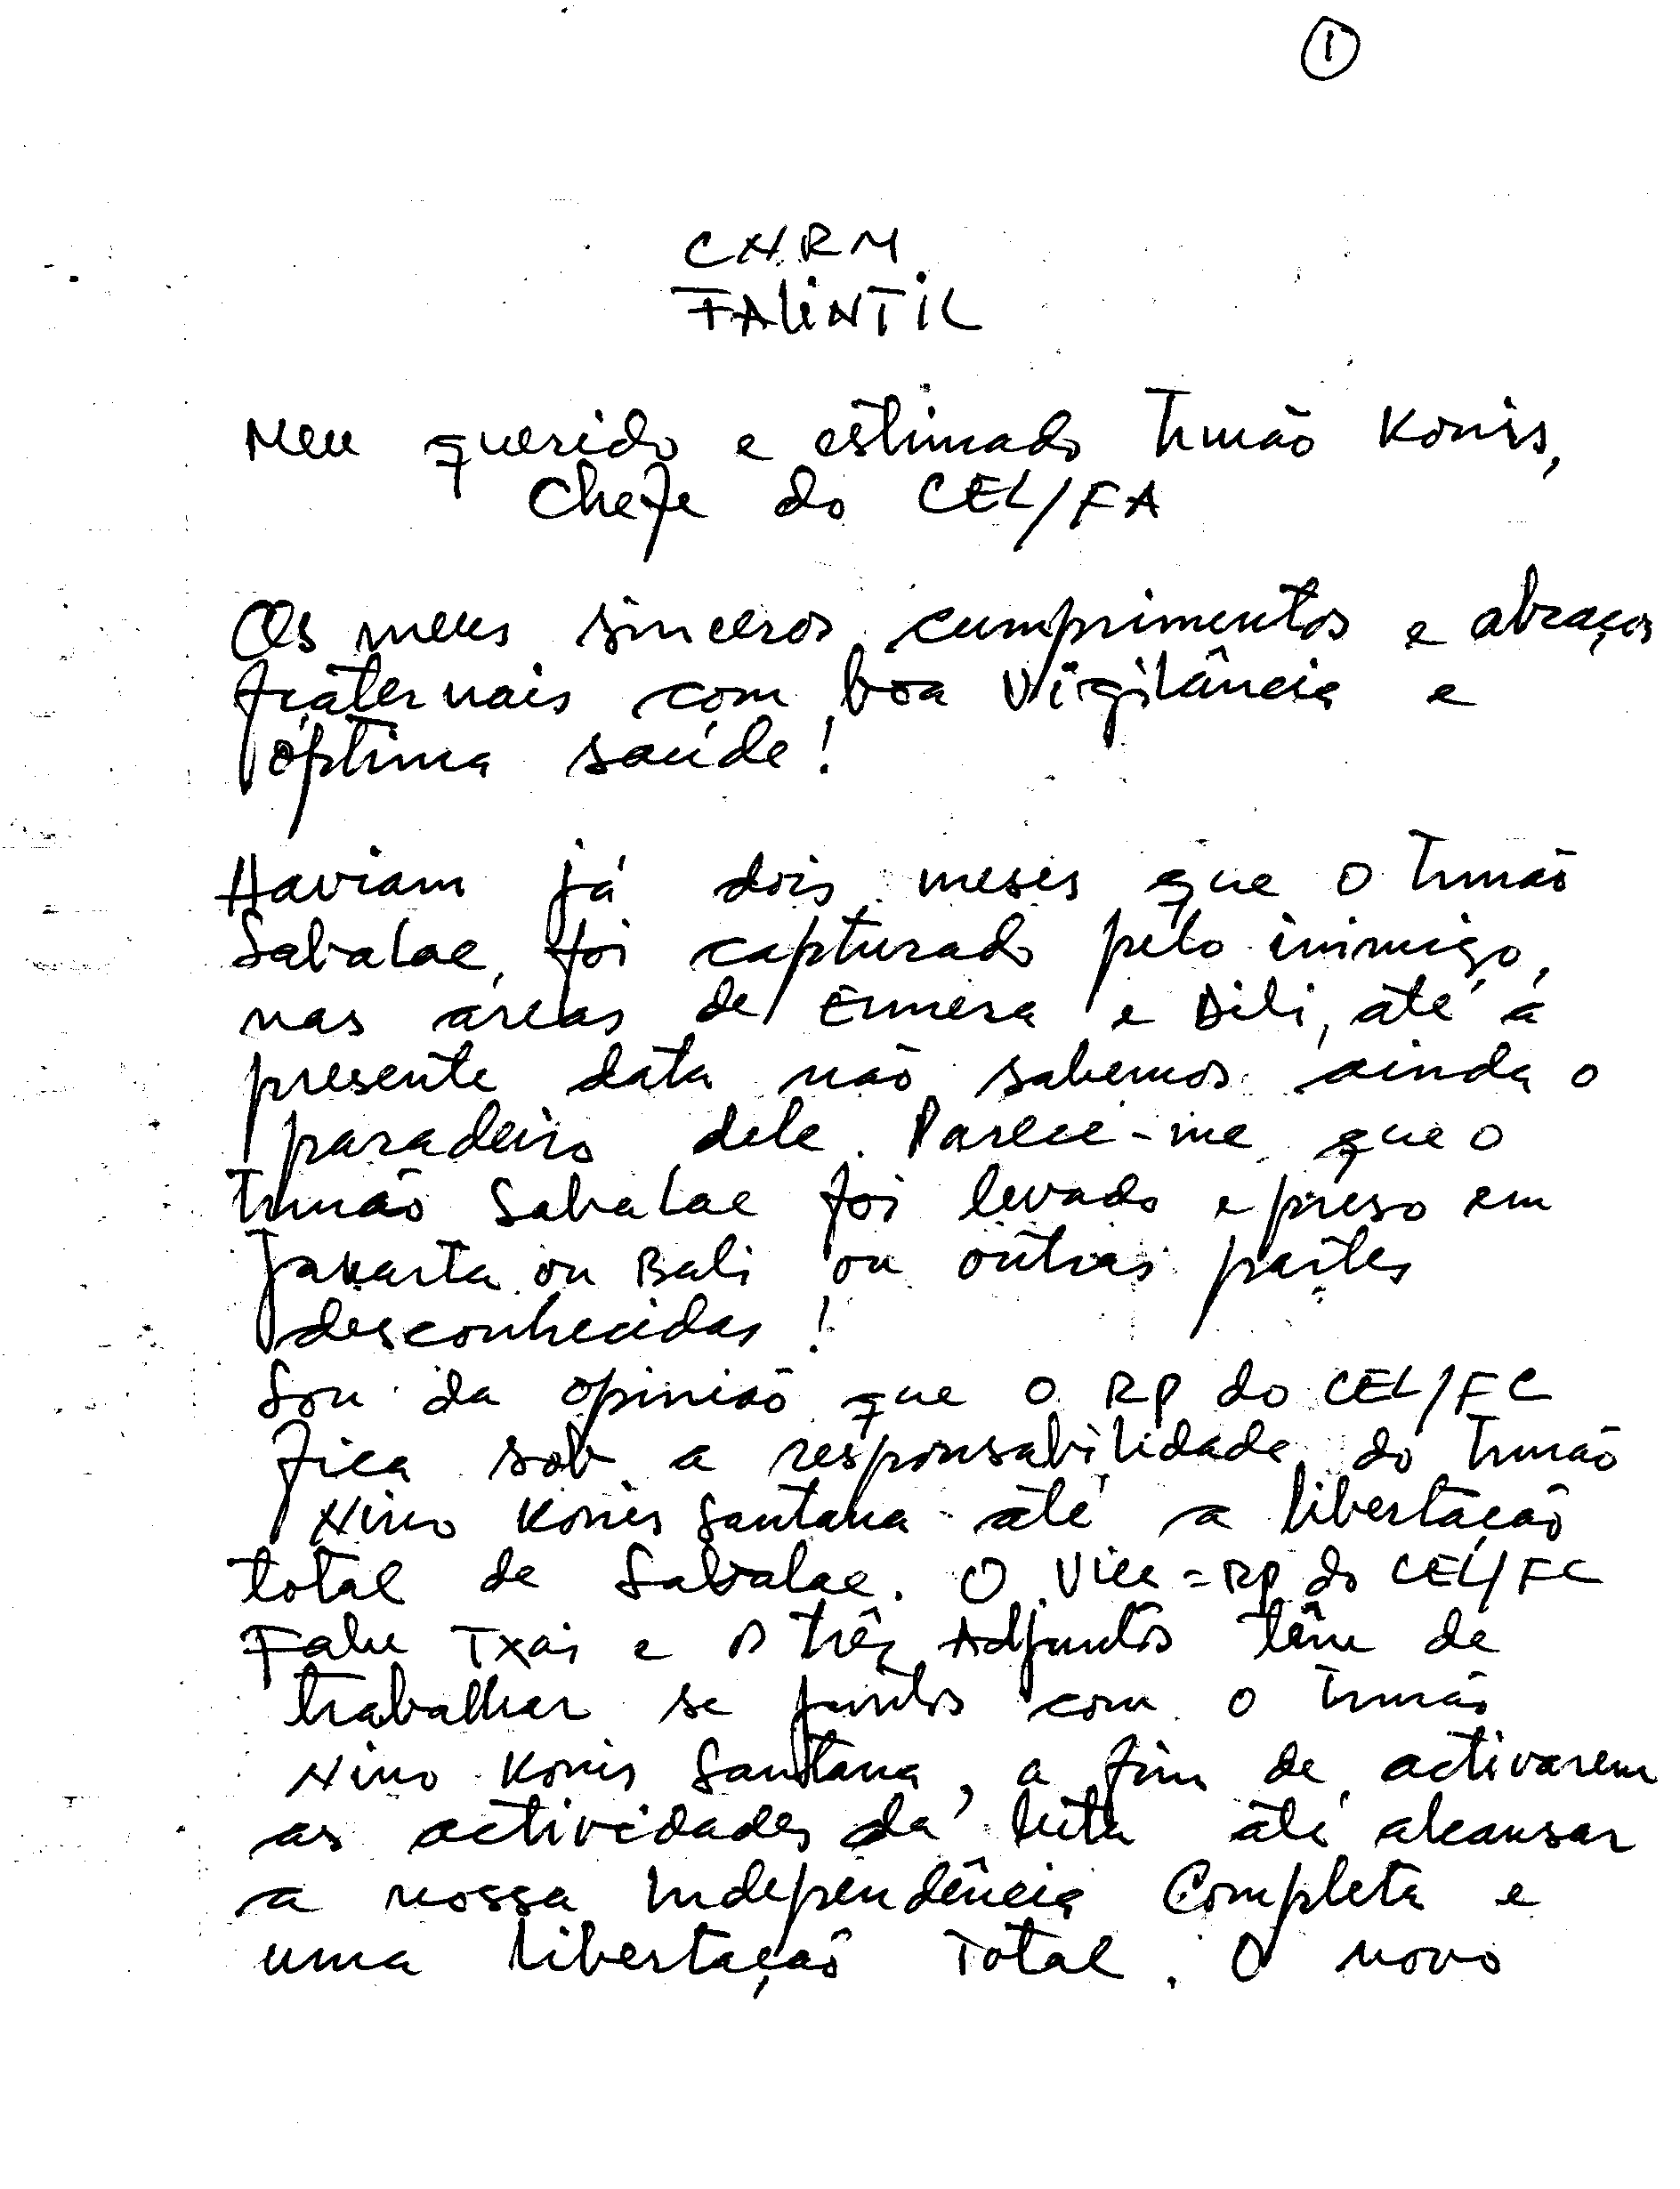 1
CNRM
FALiNTiL
Meu querido e estimado Irmão Konis,
Chefe do CEL/FA
Os meus sinceros cumprimentos e abraços
fraternais com boa vigilância e
óptima saúde!
Haviam já dois meses que o Irmão
Sabalae, foi capturado pelo inimigo,
nas áreas de Ermera e Dili, até á
presente data não sabemos ainda o
paradeiro dele. Parece-me que o
Irmão Sabalae foi levado e preso em
Jakarta ou Bali ou outras partes
desconhecidas!
Sou da opinião que o RP do CEL/FC
fica sob a responsabilidade do Irmão
Nino Konis Santana até a libertação
total de Sabalae. O Vice=RP do CEL/FC
Falu Txai e os três Adjuntos têm de
trabalhar se juntos com o Irmão
Nino Konis Santana, a fim de activarem
as actividades da luta até alcansar
a nossa Independência Completa e
uma libertação Total. O novo